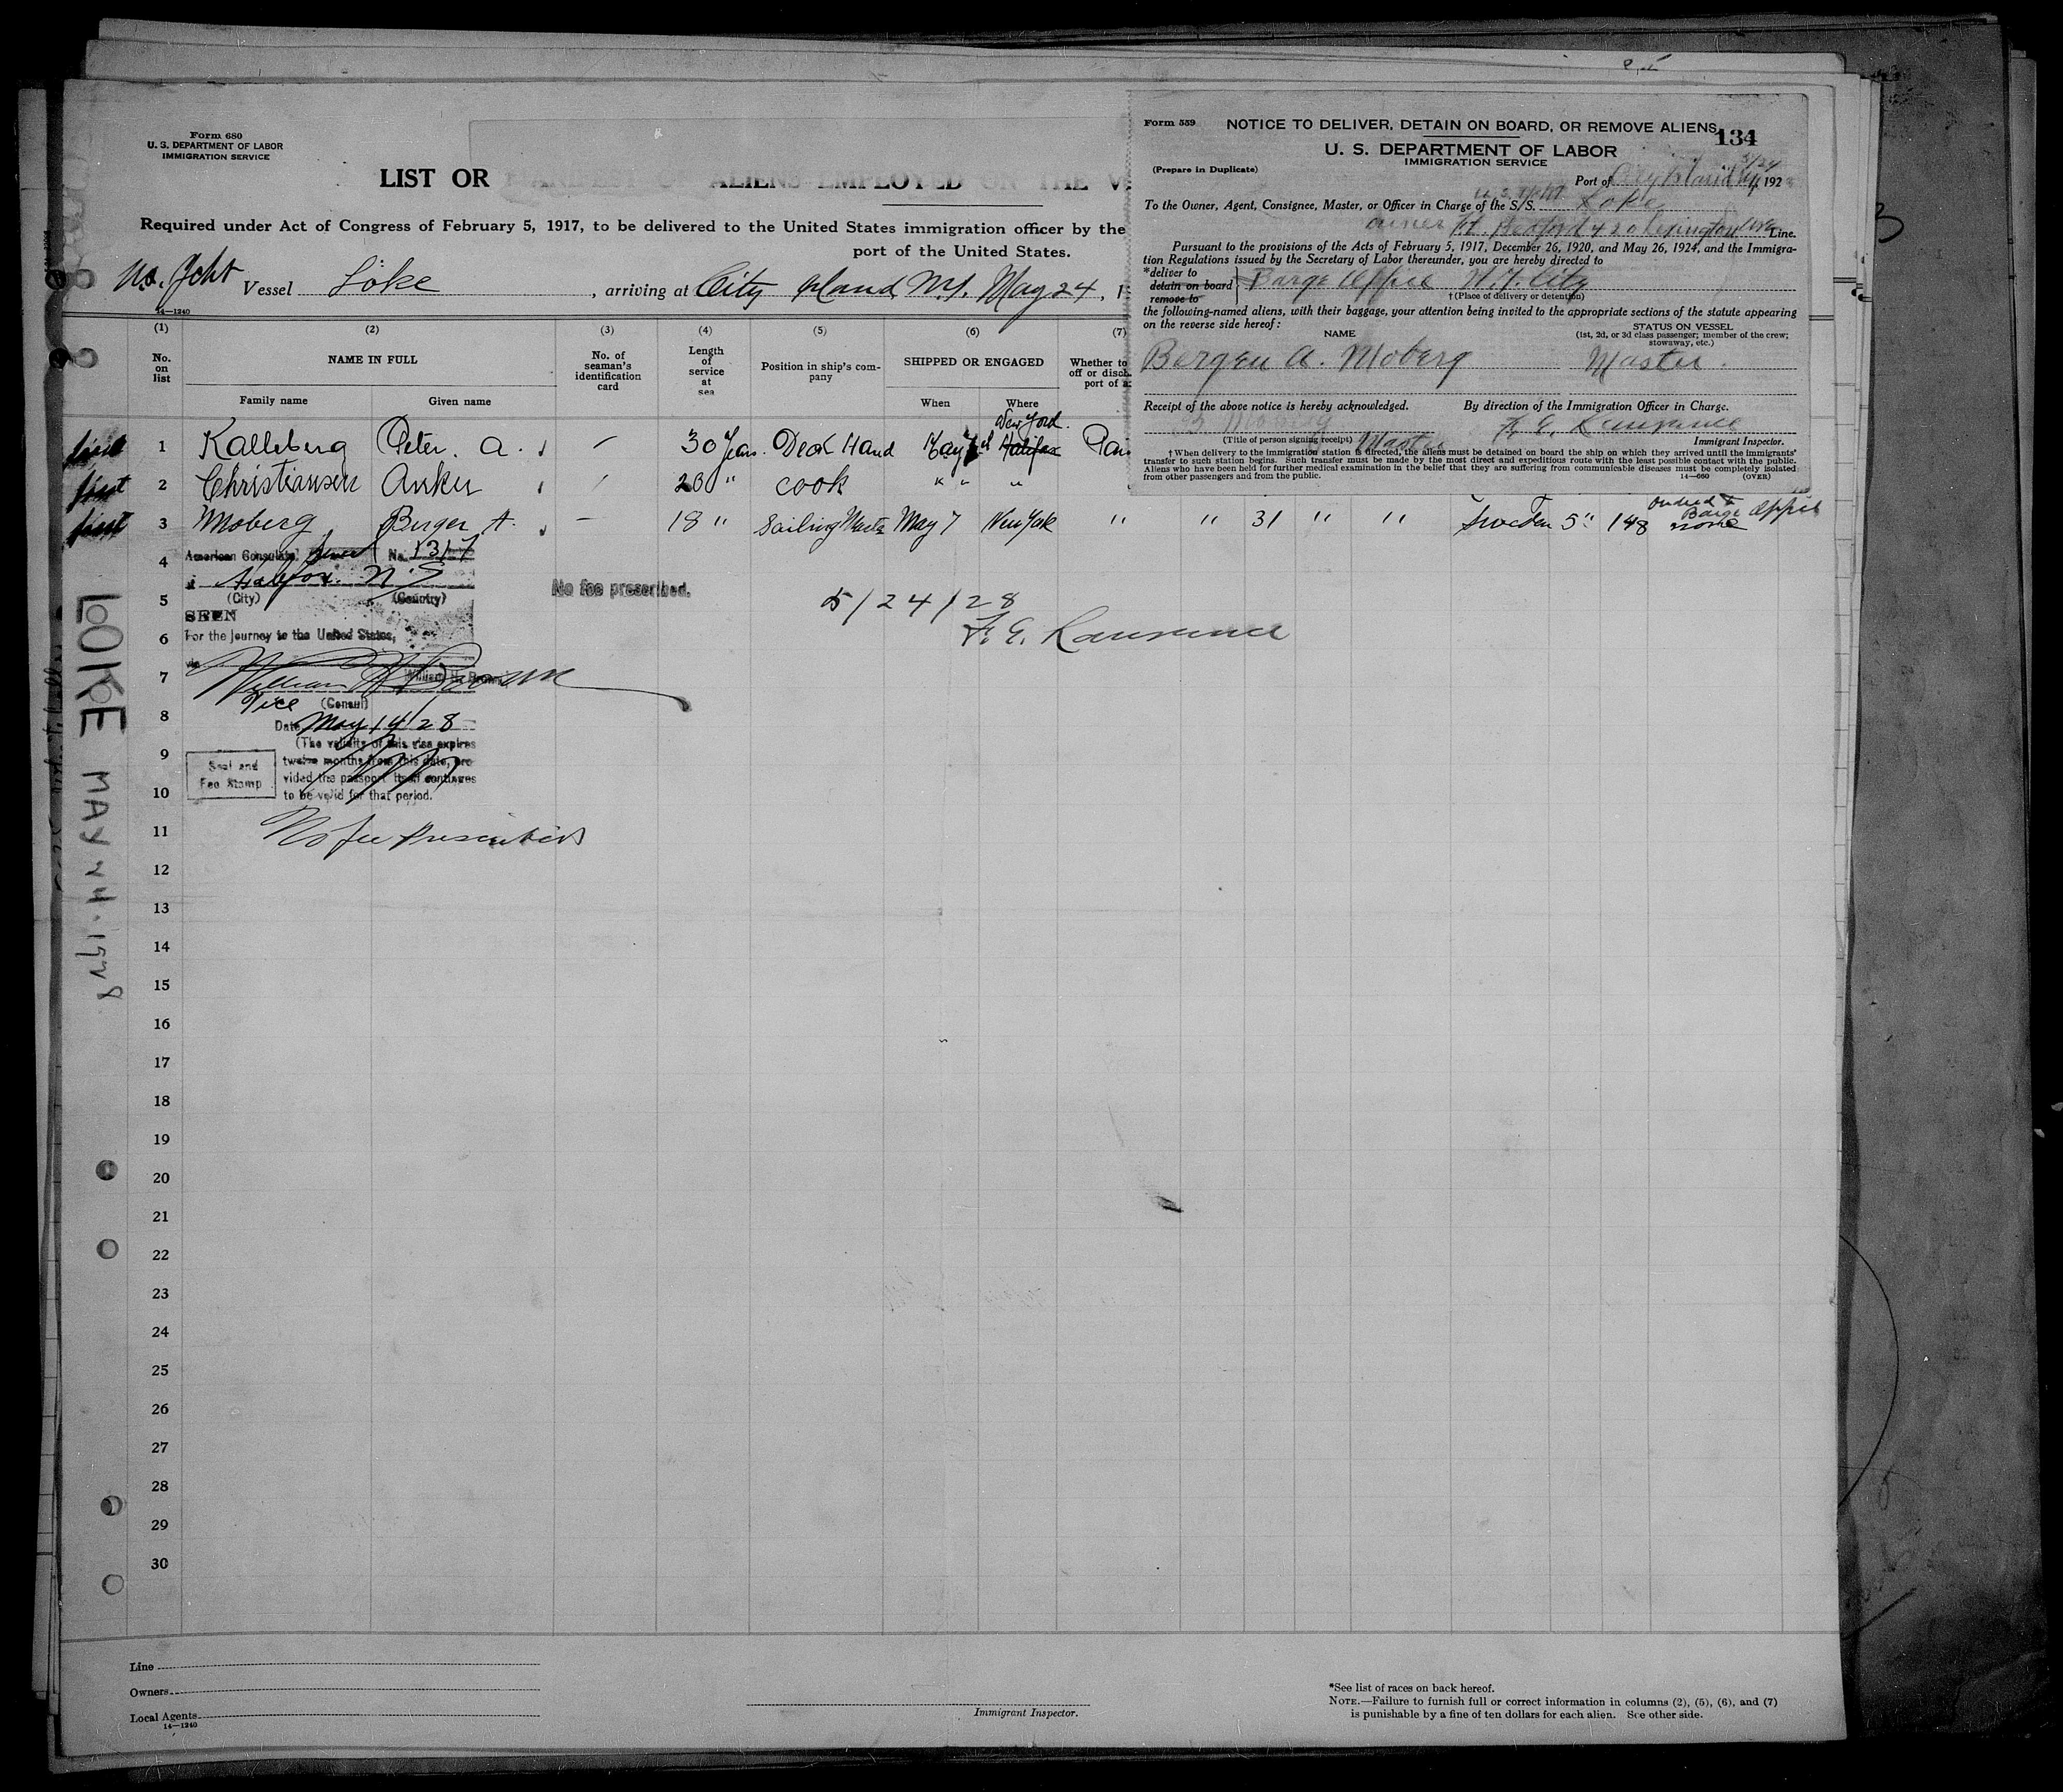 Form 680
U. S. DEPARTMENT OF LABOR
IMMIGRATION SERVICE
LIST OR ALIENS EMPLOYED ON THE
Required under Act of Congress of February 5, 1917, to be delivered to the United States immigration officer by the
port of the United States.
Vessel Loke, arriving at City Island N.Y. May 24, 1
14—1240
(1) (2) (3) (4) (5) (6) (7)
No. on list
NAME IN FULL
Family name
Given name
No. of seaman's identification card
Length of service at sea
Position in ship's company
SHIPPED OR ENGAGED
When
Where
Whether to
off or disch
port of a
New York
first 1 Kalleberg Peter. A. — 30 Years. Deck Hand May Halifax
first 2 Christiansen Anker 20 " cook " " "
first 3 Moberg Birger A. — 18 " Sailing Master May 7 New York " " 31 " " Sweden 5" 148 none
Barge Office
4
5
6
7
8
9
10
11
12
13
14
15
16
17
18
19
20
21
22
23
24
25
26
27
28
29
30
American Consulate No. 1317
Halifax. N.S.
(City) (Country)
SEEN
For the journey to the United States,
via
William
Vice (Consul)
Date May 14/28
(The validity of this visa expires
twelve months from this date, pro-
vided the passport itself continues
to be valid for that period.
Seal and
Fee Stamp
No fee prescribed.
No fee prescribed
5/24/28
F. E. Lawrence
LOKE MAY 24.1928
Form 559
NOTICE TO DELIVER, DETAIN ON BOARD, OR REMOVE ALIENS
134
U. S. DEPARTMENT OF LABOR
IMMIGRATION SERVICE
(Prepare in Duplicate)
Port of City Island 5/24 192
To the Owner, Agent, Consignee, Master, or Officer in Charge of the S/S. Loke
owner Lexington Ave Line.
Pursuant to the provisions of the Acts of February 5, 1917, December 26, 1920, and May 26, 1924, and the Immigra-
tion Regulations issued by the Secretary of Labor thereunder, you are hereby directed to
*deliver to
detain on board
remove to
Barge Office N.Y. City
†(Place of delivery or detention)
the following-named aliens, with their baggage, your attention being invited to the appropriate sections of the statute appearing
on the reverse side hereof:
NAME
STATUS ON VESSEL
(1st, 2d, or 3d class passenger; member of the crew;
stowaway, etc.)
Bergen A. Moberg Master.
Receipt of the above notice is hereby acknowledged.
By direction of the Immigration Officer in Charge.
B Moberg
F. E. Lawrence
(Title of person signing receipt) Master
Immigrant Inspector.
†When delivery to the immigration station is directed, the aliens must be detained on board the ship on which they arrived until the immigrants'
transfer to such station begins. Such transfer must be made by the most direct and expeditious route with the least possible contact with the public.
Aliens who have been held for further medical examination in the belief that they are suffering from communicable diseases must be completely isolated
from other passengers and from the public.
14—660 (OVER)
Line
Owners
Local Agents
14—1240
Immigrant Inspector.
*See list of races on back hereof.
NOTE.—Failure to furnish full or correct information in columns (2), (5), (6), and (7)
is punishable by a fine of ten dollars for each alien. See other side.